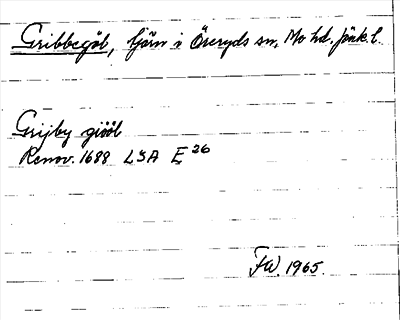 Gribbegöl, tjärn i Öreryds sn, Mo hd. Jönk. l.
Grijby giööl
Renov. 1688 LSA E 26
FW. 1965.